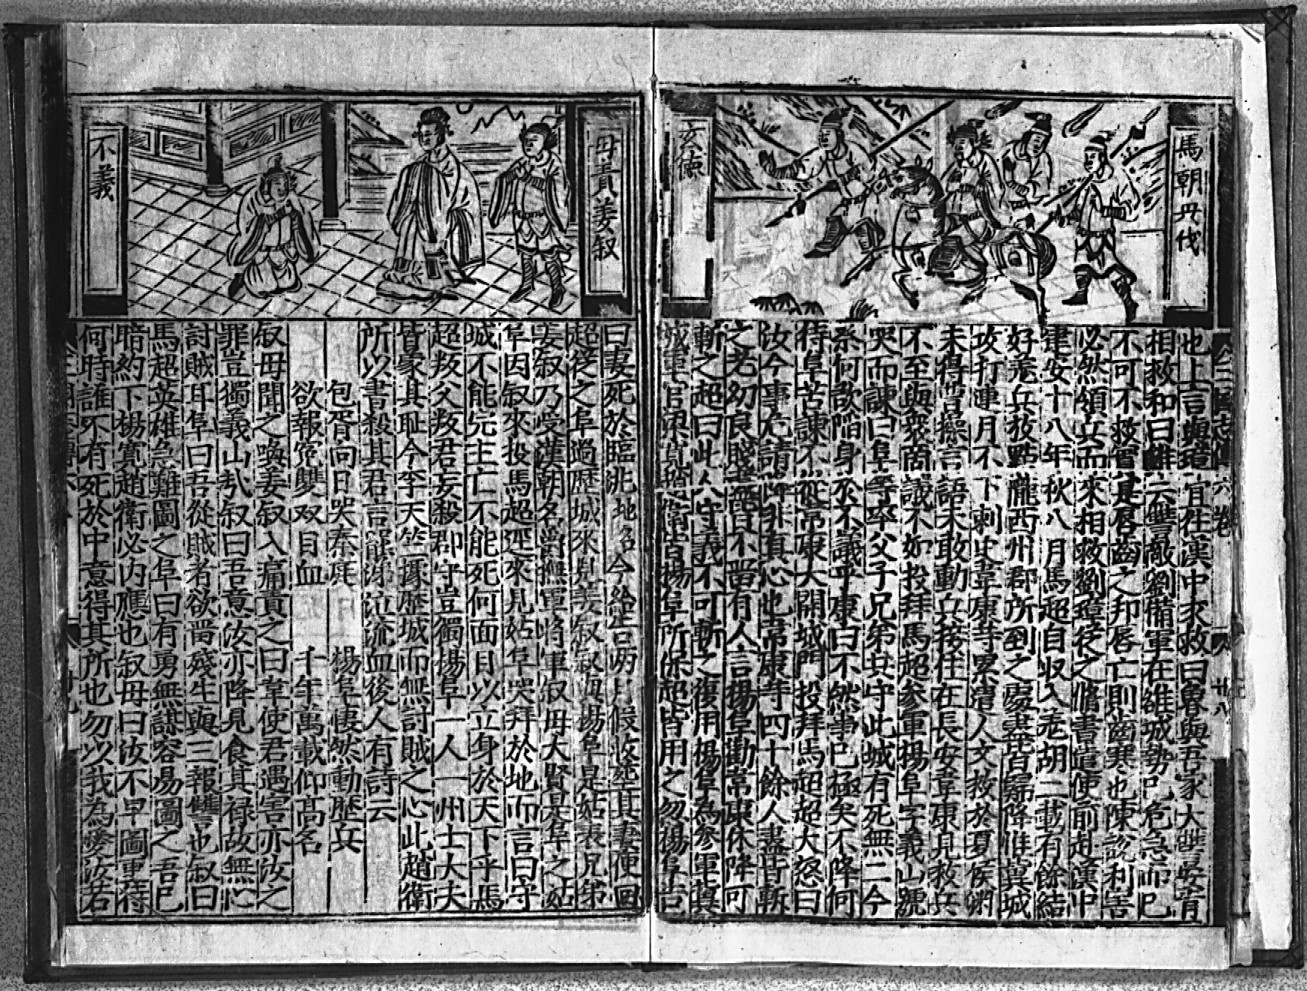 馬朝丹伐
也上言與璋宜往漢中求救曰魯與吾家大讐安肯
相救和曰雖云讐敵劉備軍在雒城勢已危急而已
不可不救實其唇齒之邦唇亡則齒寒也陳說利害
必然領兵而來相救劉璋從之脩書遣使前赴漢中
建安十八年秋八月馬超自收入羌胡二載有餘結
好羌兵攻點隴西州郡所到之處盡皆歸降惟冀城
攻打連月不下刺史韋康等累遣人文救於夏侯淵
未得曹操言語未敢動兵接住在長安韋康見救兵
不至與衆商議不如投拜馬超參軍楊阜字義山號
哭而諫曰阜等率父子兄弟共守此城有死無二今
柰何欲陷身於不議乎康曰不然事已極矣不降何
待阜苦諫不從韋康大開城門投拜馬超超大怒曰
汝今事危請降非真心也韋康等四十餘人盡皆斬
之老幼良賤不留有人言楊阜勸韋康休降可
斬之超曰此人守義不可斬之復用楊阜為參軍冀
楊阜所保超皆用之勿楊阜告
母責姜叙
不義
曰妻死於臨洮地名今給告兩月假收塟其妻便回
超從之阜過歷城來見姜叙叙與楊阜是姑表兄弟
姜叙乃受漢朝名爵撫軍將軍叙母大賢是阜之姑
阜因叙來投馬超逕來見姑阜哭拜於地而言曰守
城不能完主亡不能死何面目以立身於天下乎馬
超叛父叛君妄殺郡守豈獨楊阜一人一州士大夫
皆蒙其耻今李天竺據歷城而無討賊之心此趙衛
所以書殺其君言罷涕泣流血後人有詩云
包胥向日哭秦庭 楊阜悽然動歷兵
欲報冤讐双目血 千年萬載仰髙名
叙母聞之喚姜叙入痛責之曰韋使君遇害亦汝之
罪豈獨義山哉叙曰吾意汝亦降見食其禄故無心
討賊耳阜曰吾從賊者欲留殘生與三報讐也叙曰
馬超英雄急難圖之阜曰有勇無謀容易圖之吾已
暗約下楊寬趙衢必内應也叙母曰汝不早圖更待
何時誰不有死於中意得其所也勿以我為念汝若